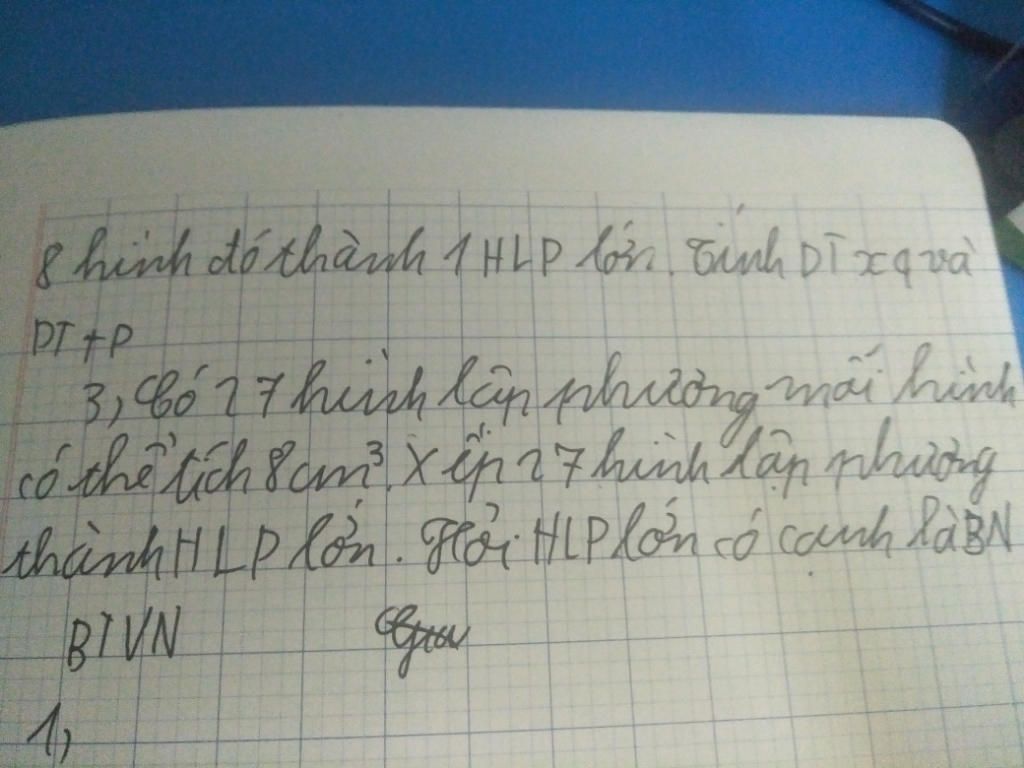 8 hình đó thành 1 HLP lớn. Tính DT xq và
DT tP
3, Có 27 hình lập phương mỗi hình
có thể tích 8cm³. Xếp 27 hình lập phương
thành HLP lớn. Hỏi HLP lớn có cạnh là BN
BTVN
1,